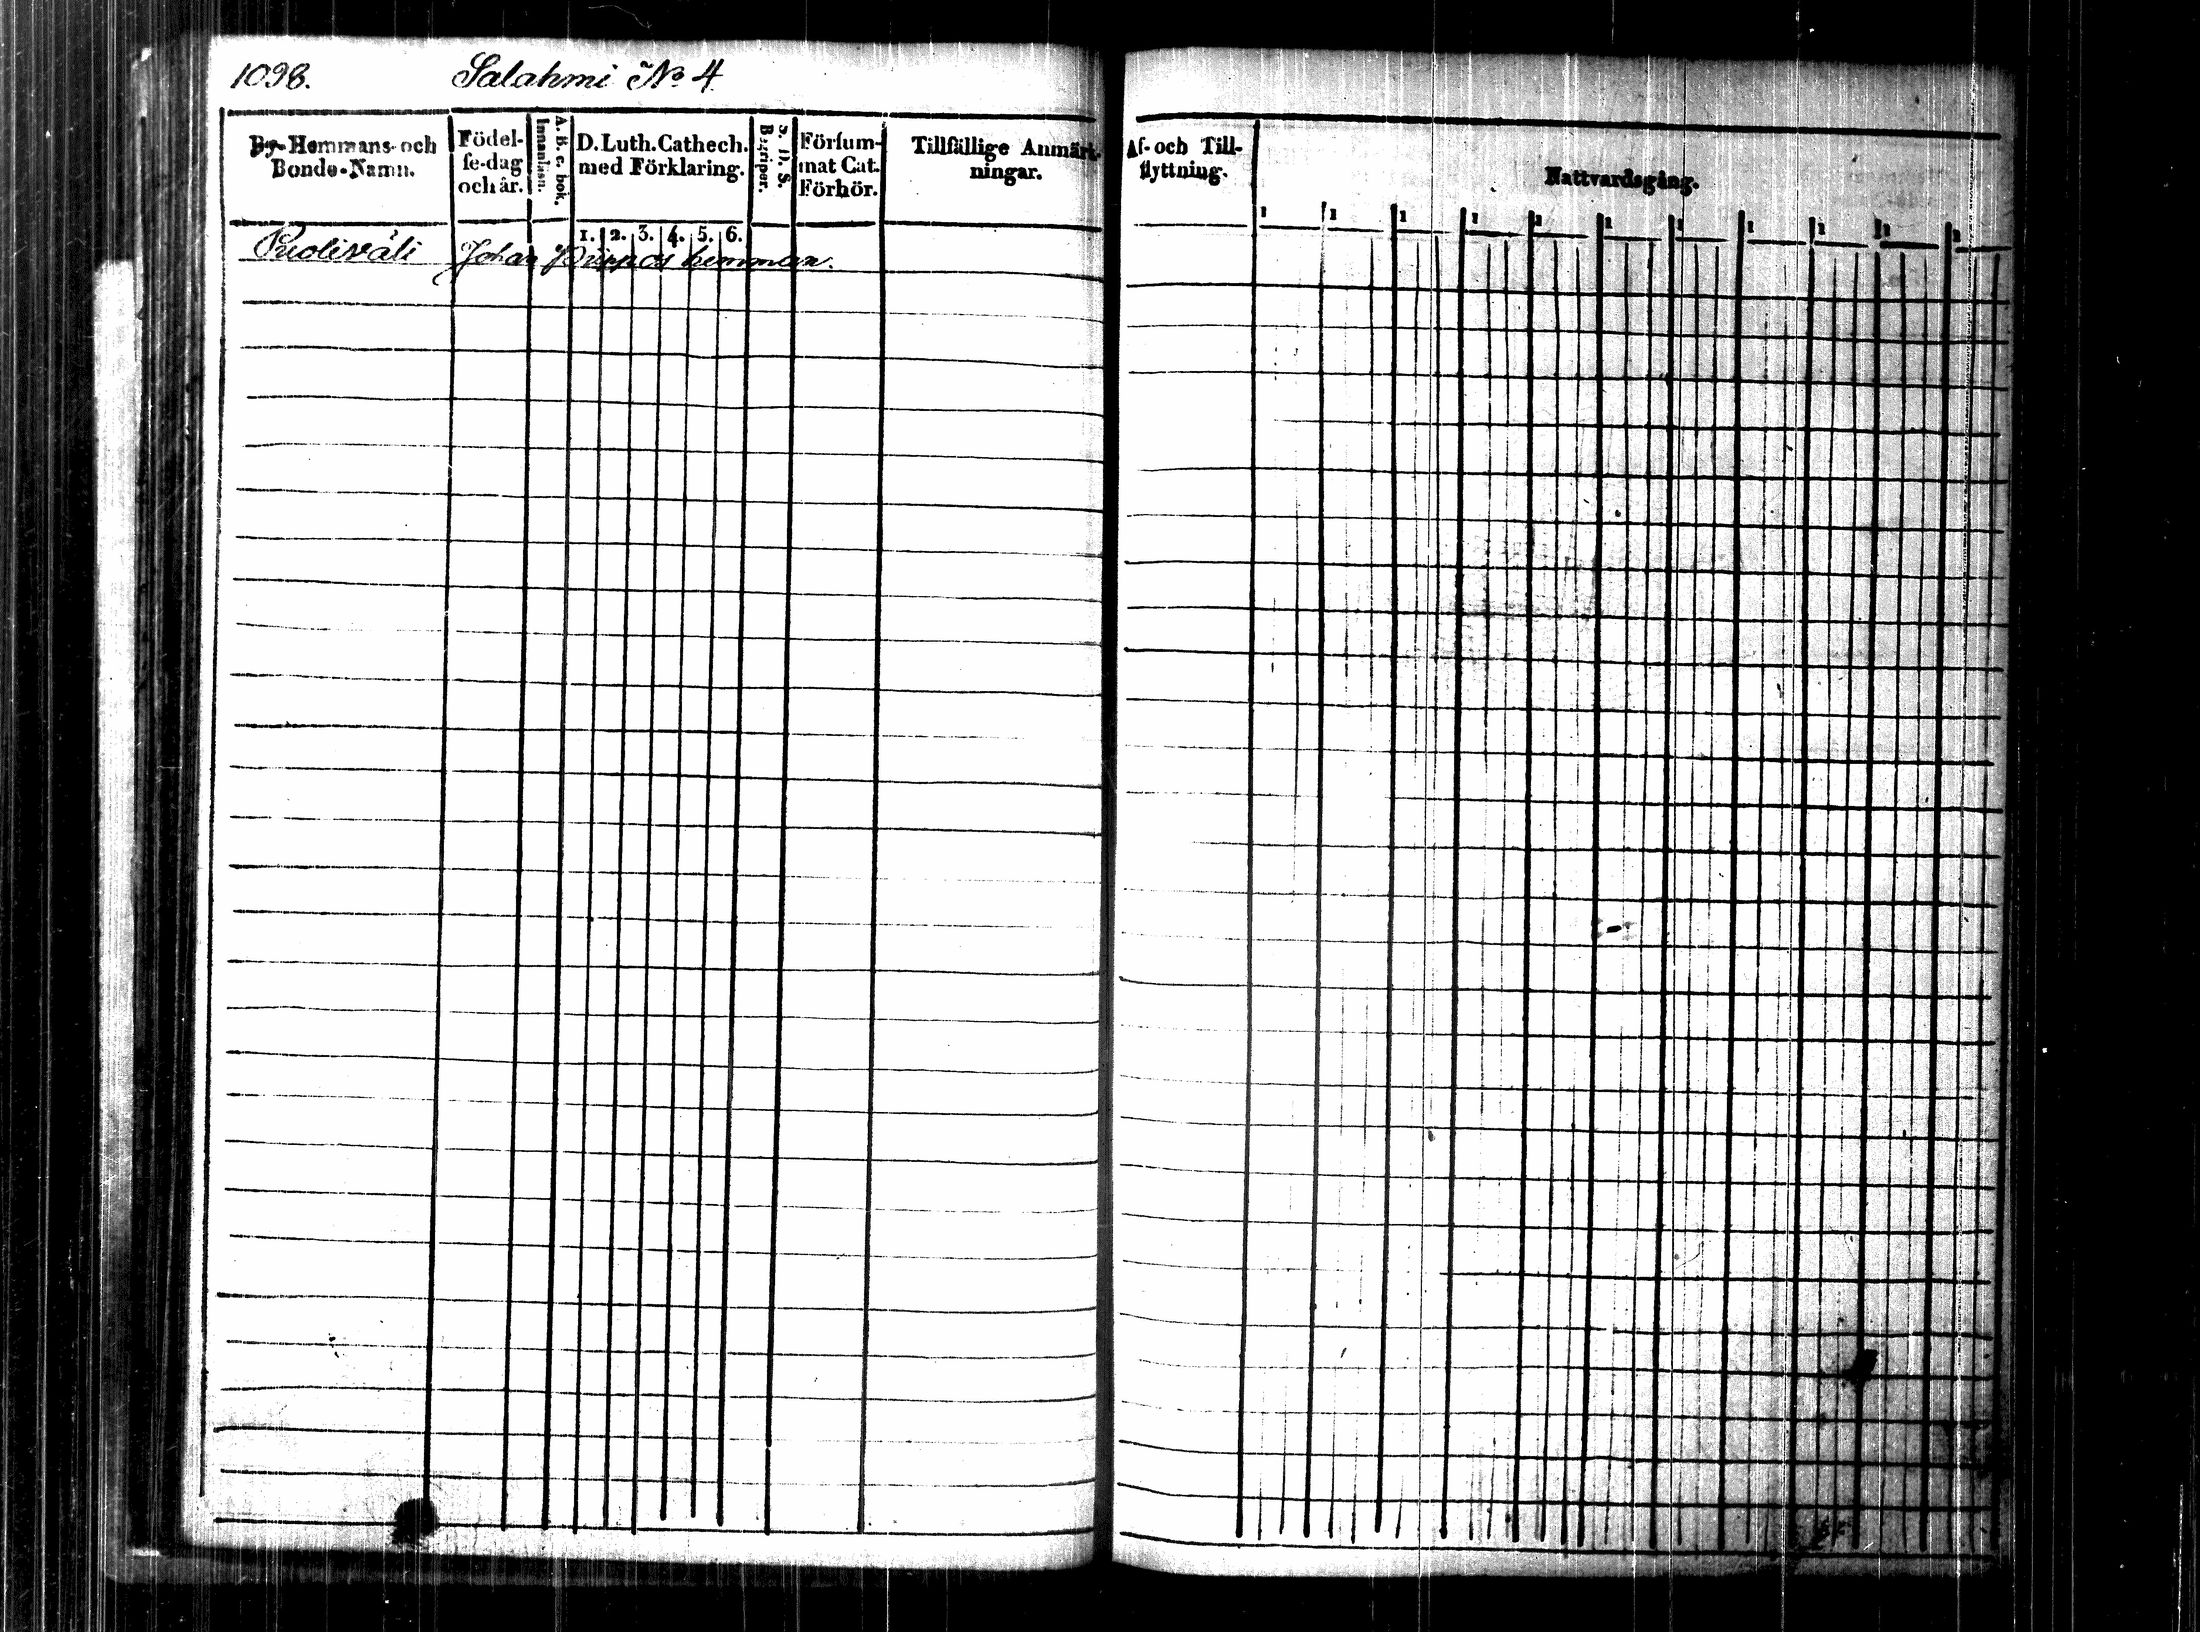 1098. Salahmi No 4
By- Hemmans- och
Bonde-Namn.
Födel-
se-dag
och år.
A. B. c. bok.
Innanläsn.
D. Luth. Cathech.
med Förklaring.
1. 2. 3. 4. 5. 6.
s. D. S.
Begriper.
Försum-
mat Cat.
Förhör.
Tillfällige Anmärk-
ningar.
Puoliväli Johan Piippos hemman.
Af- och Till-
flyttning.
Nattvardsgång.
1 1 1 1 1 1 1 1 1 1 1